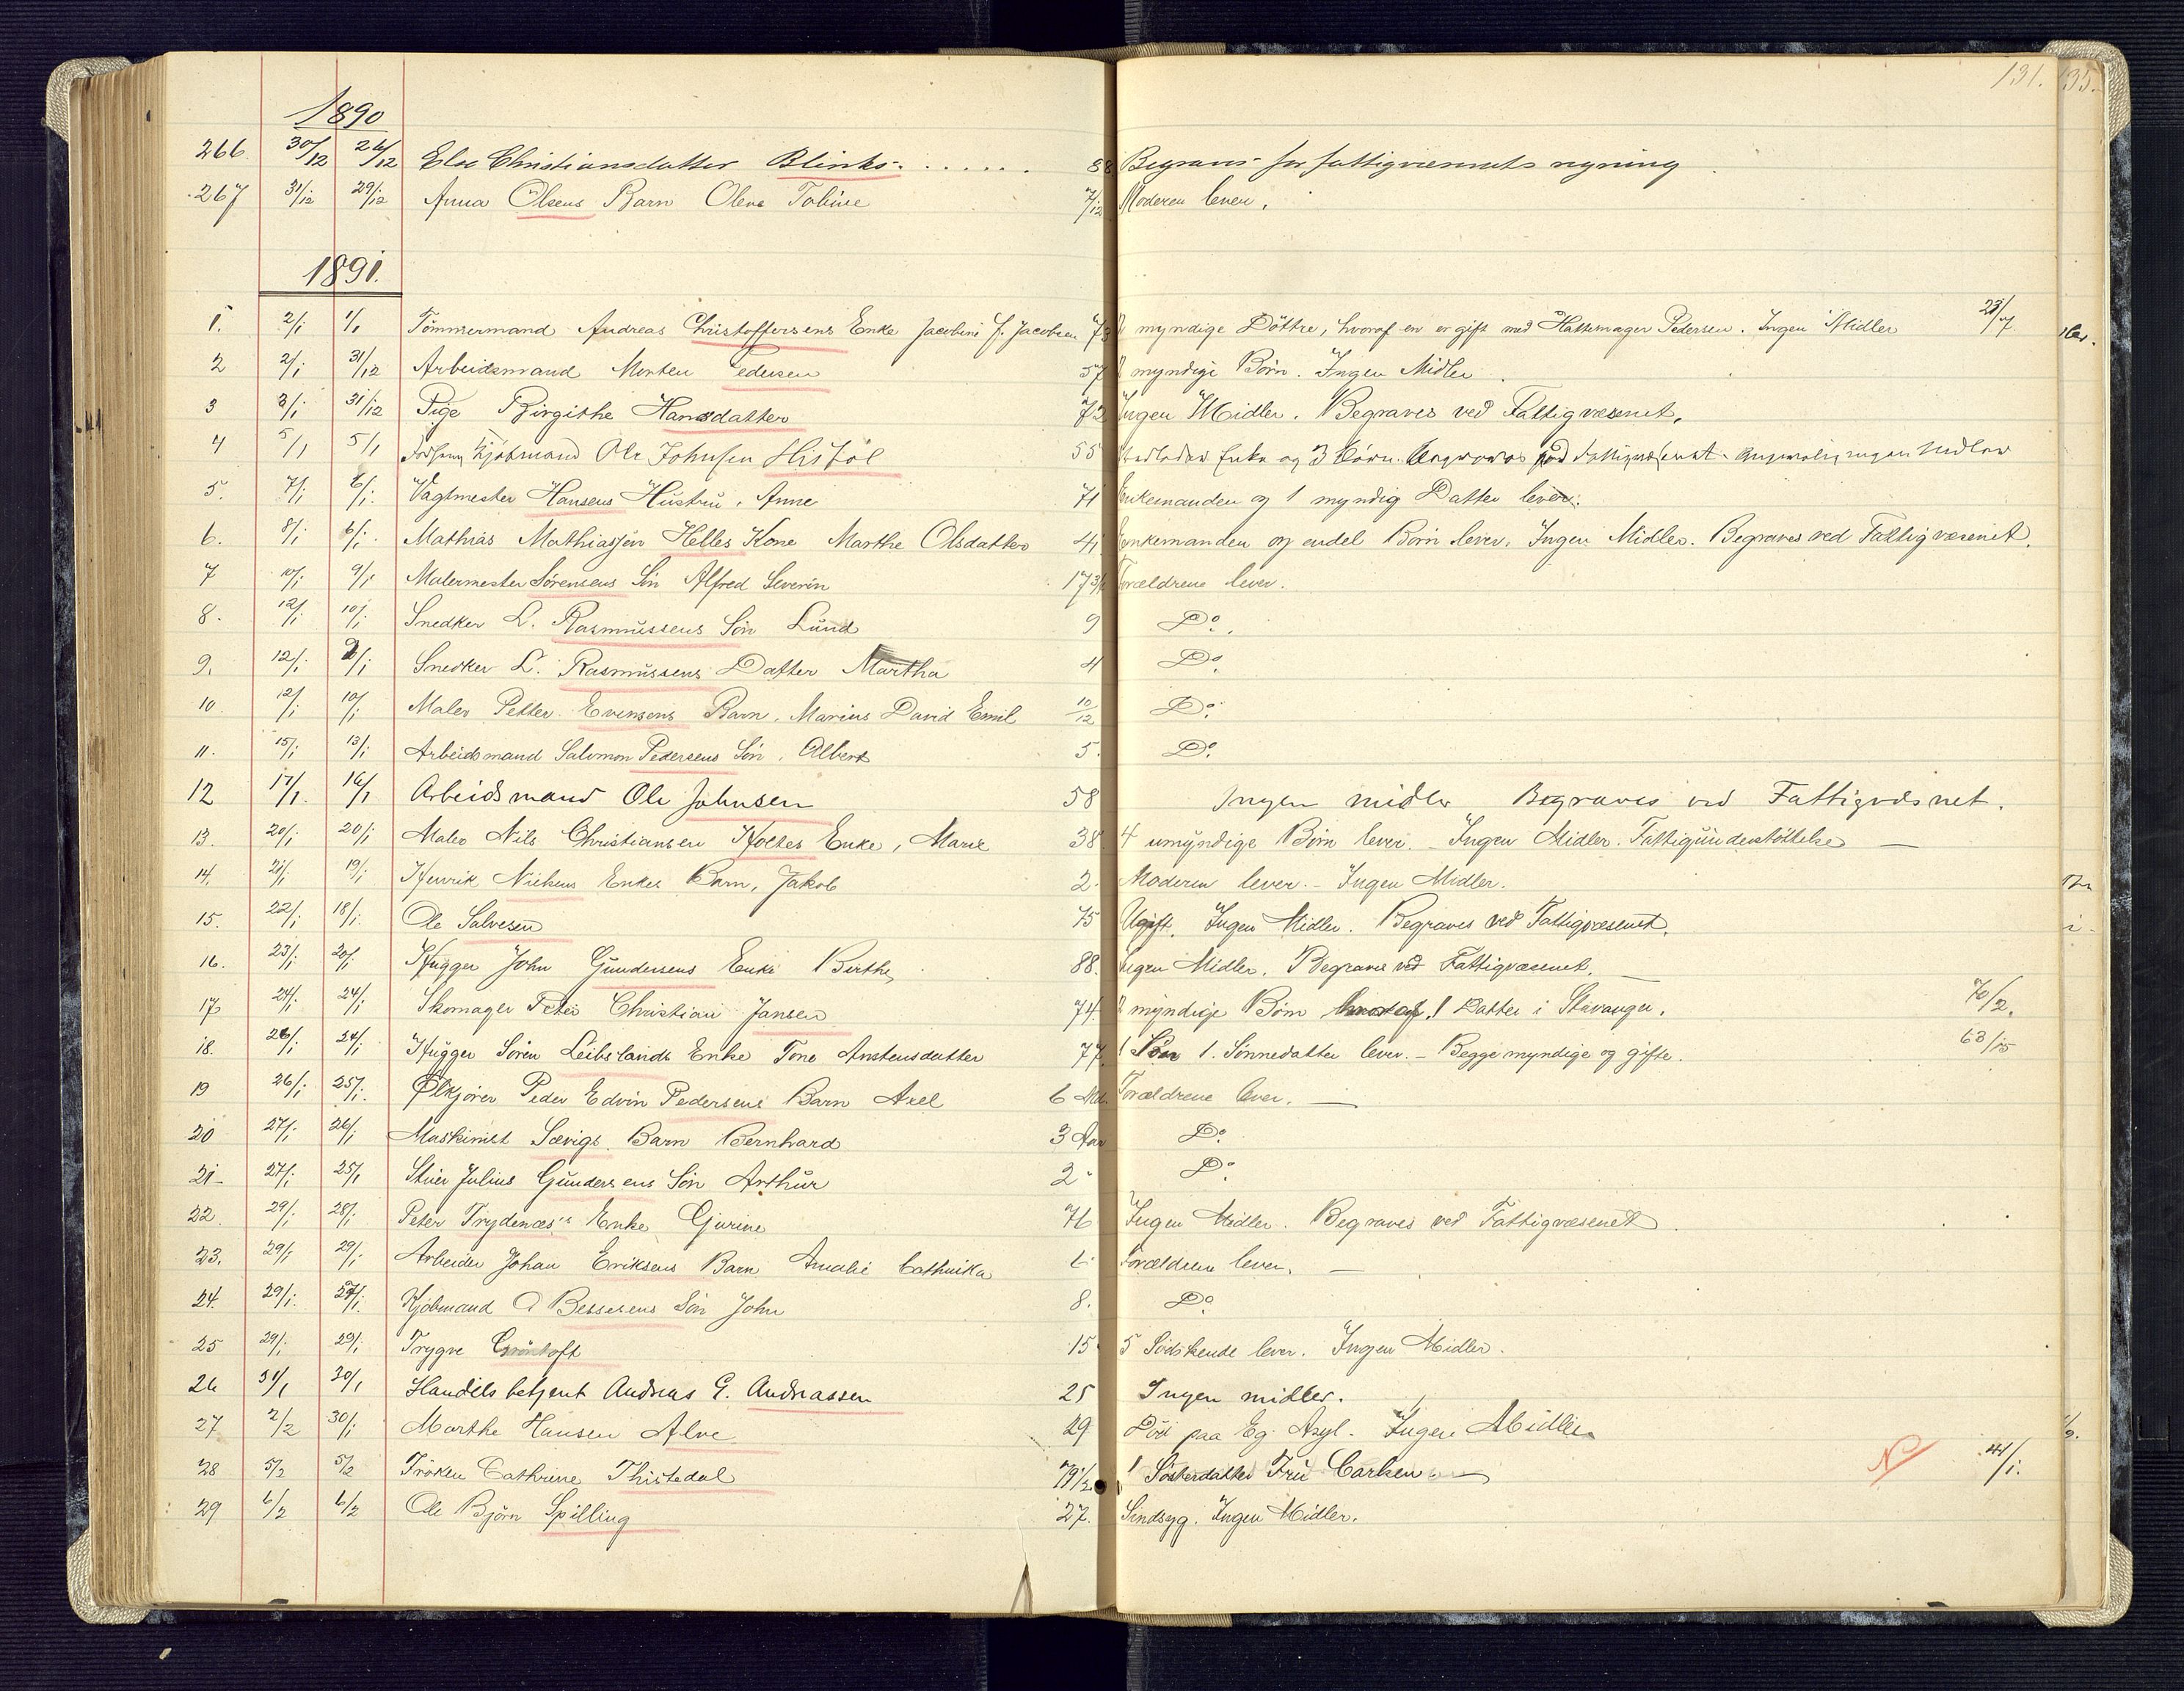 131. 135.
1890
266. 30/12 26/12 Else Christiansdatter Blinks. . . . . . . 88 Begraves for fattigvæsenets regning.
267 31/12 29/12 Anna Olsens Barn Olene Tobine 7/12 Moderen lever.
1891.
1. 2/1 1/1 Tömmermand Andreas Christoffersens Enke Jacobine f. Jacobsen 73 2 myndige Döttre, hvoraf en er gift med Hattemager Pedersen. Ingen Midler 23/7
2 2/1 31/12 Arbeidsmand Morten Pedersen 57 myndige Børn. Ingen Midler.
3 3/1 31/12 Pige Birgithe Hansdatter 72 Ingen Midler. Begraves ved Fattigvæsenet.
4 5/1 5/1 Kjöbmand Ole Johnsen Hisföl 55 Enke og 3 börn. ingen midler
5. 7/1 6/1. Vagtmester Hansens Hustru, Anne 71 Enkemanden og 1 myndig Datter lever.
6. 8/1 6/1. Mathias Mathiassen Helles Kone Marthe Olsdatter 41 Enkemanden og endel Børn lever. Ingen Midler. Begraves ved Fattigvæsenet.
7 10/1 9/1 Malermester Sörensens Sön Alfred Severin 17 3/4 Forældrene lever.
8. 12/1 10/1 Snedker L. Rasmussens Sön Lund 9 Do.
9. 12/1 9/1 Snedker L. Rasmussens Datter Martha 4 Do.
10 12/1 10/1 Maler Petter Evensens Barn, Marius David Emil 10/12 Do.
11. 15/1 13/1 Arbeidsmand Salomon Pedersens Sön, Albert 5. Do.
12 17/1. 16/1 Arbeidsmand Ole Johnsen 58 Ingen midler Begraves ved Fattigvæsnet.
13. 20/1 20/1 Maler Nils Christiansen Holtes Enke, Marie 38 4 umyndige Børn lever. - Ingen Midler. Fattigunderstöttelse —
14. 21/1 19/1 Henrik Nielsens Enkes Barn, Jakob 2. Moderen lever. - Ingen Midler.
15. 22/1 18/1. Ole Salvesen 75 Ugift. Ingen Midler. Begraves ved Fattigvæsenet.
16. 23/1 20/1 Hugger John Gundersens Enke Berthe 88. Ingen Midler. Begraves ved Fattigvæsenet. —
17 24/1 24/1 Skomager Peter Christian Jansen 74. 2 myndige Børn hvoraf 1 Datter i Stavanger. 70/2.
18. 26/1 24/1 Hugger Sören Leibslands Enke Tone Anstensdatter 77. 1 Sön 1. Sönnedatter lever. - Begge myndige og gifte. 63/15
19 26/1 25/1. Ølkjører Peder Edvin Pedersens Barn Axel 6 Md. Forældrene lever. —
20 27/1 26/1 Maskinist Sævigs Barn Bernhard 3 Aar Do.
21- 27/1 25/1 Stuer Julius Gundersens Sön Arthur 2 " Do.
22. 29/1 28/1 Peter Trydenæs's Enke Gjurine 76 Ingen Midler. Begraves ved Fattigvæsenet.
23. 29/1 29/1 Arbeider Johan Eriksens Barn Amalie Cathinka Forældrene lever. —
24. 29/1. 27/1. Kjöbmand A Bessesens Sön John 8. Do
25 29/1 29/1 Trygve Gröntoft 15 5 Södskende lever. Ingen Midler.
26 31/1 30/1 Handelsbetjent Andreas G. Andreassen 25 Ingen midler.
27 2/2 30/1 Marthe Hansen Alve 29 Död paa Eg Asyl. Ingen Midler
28 5/2 5/2 Fröken Cathrine Thistedal 79 1/2 1 Sösterdatter Fru Carlsen — No 44/1.
29 6/2 6/2 Ole Björn Spilling 27. Sindsyg. Ingen Midler.